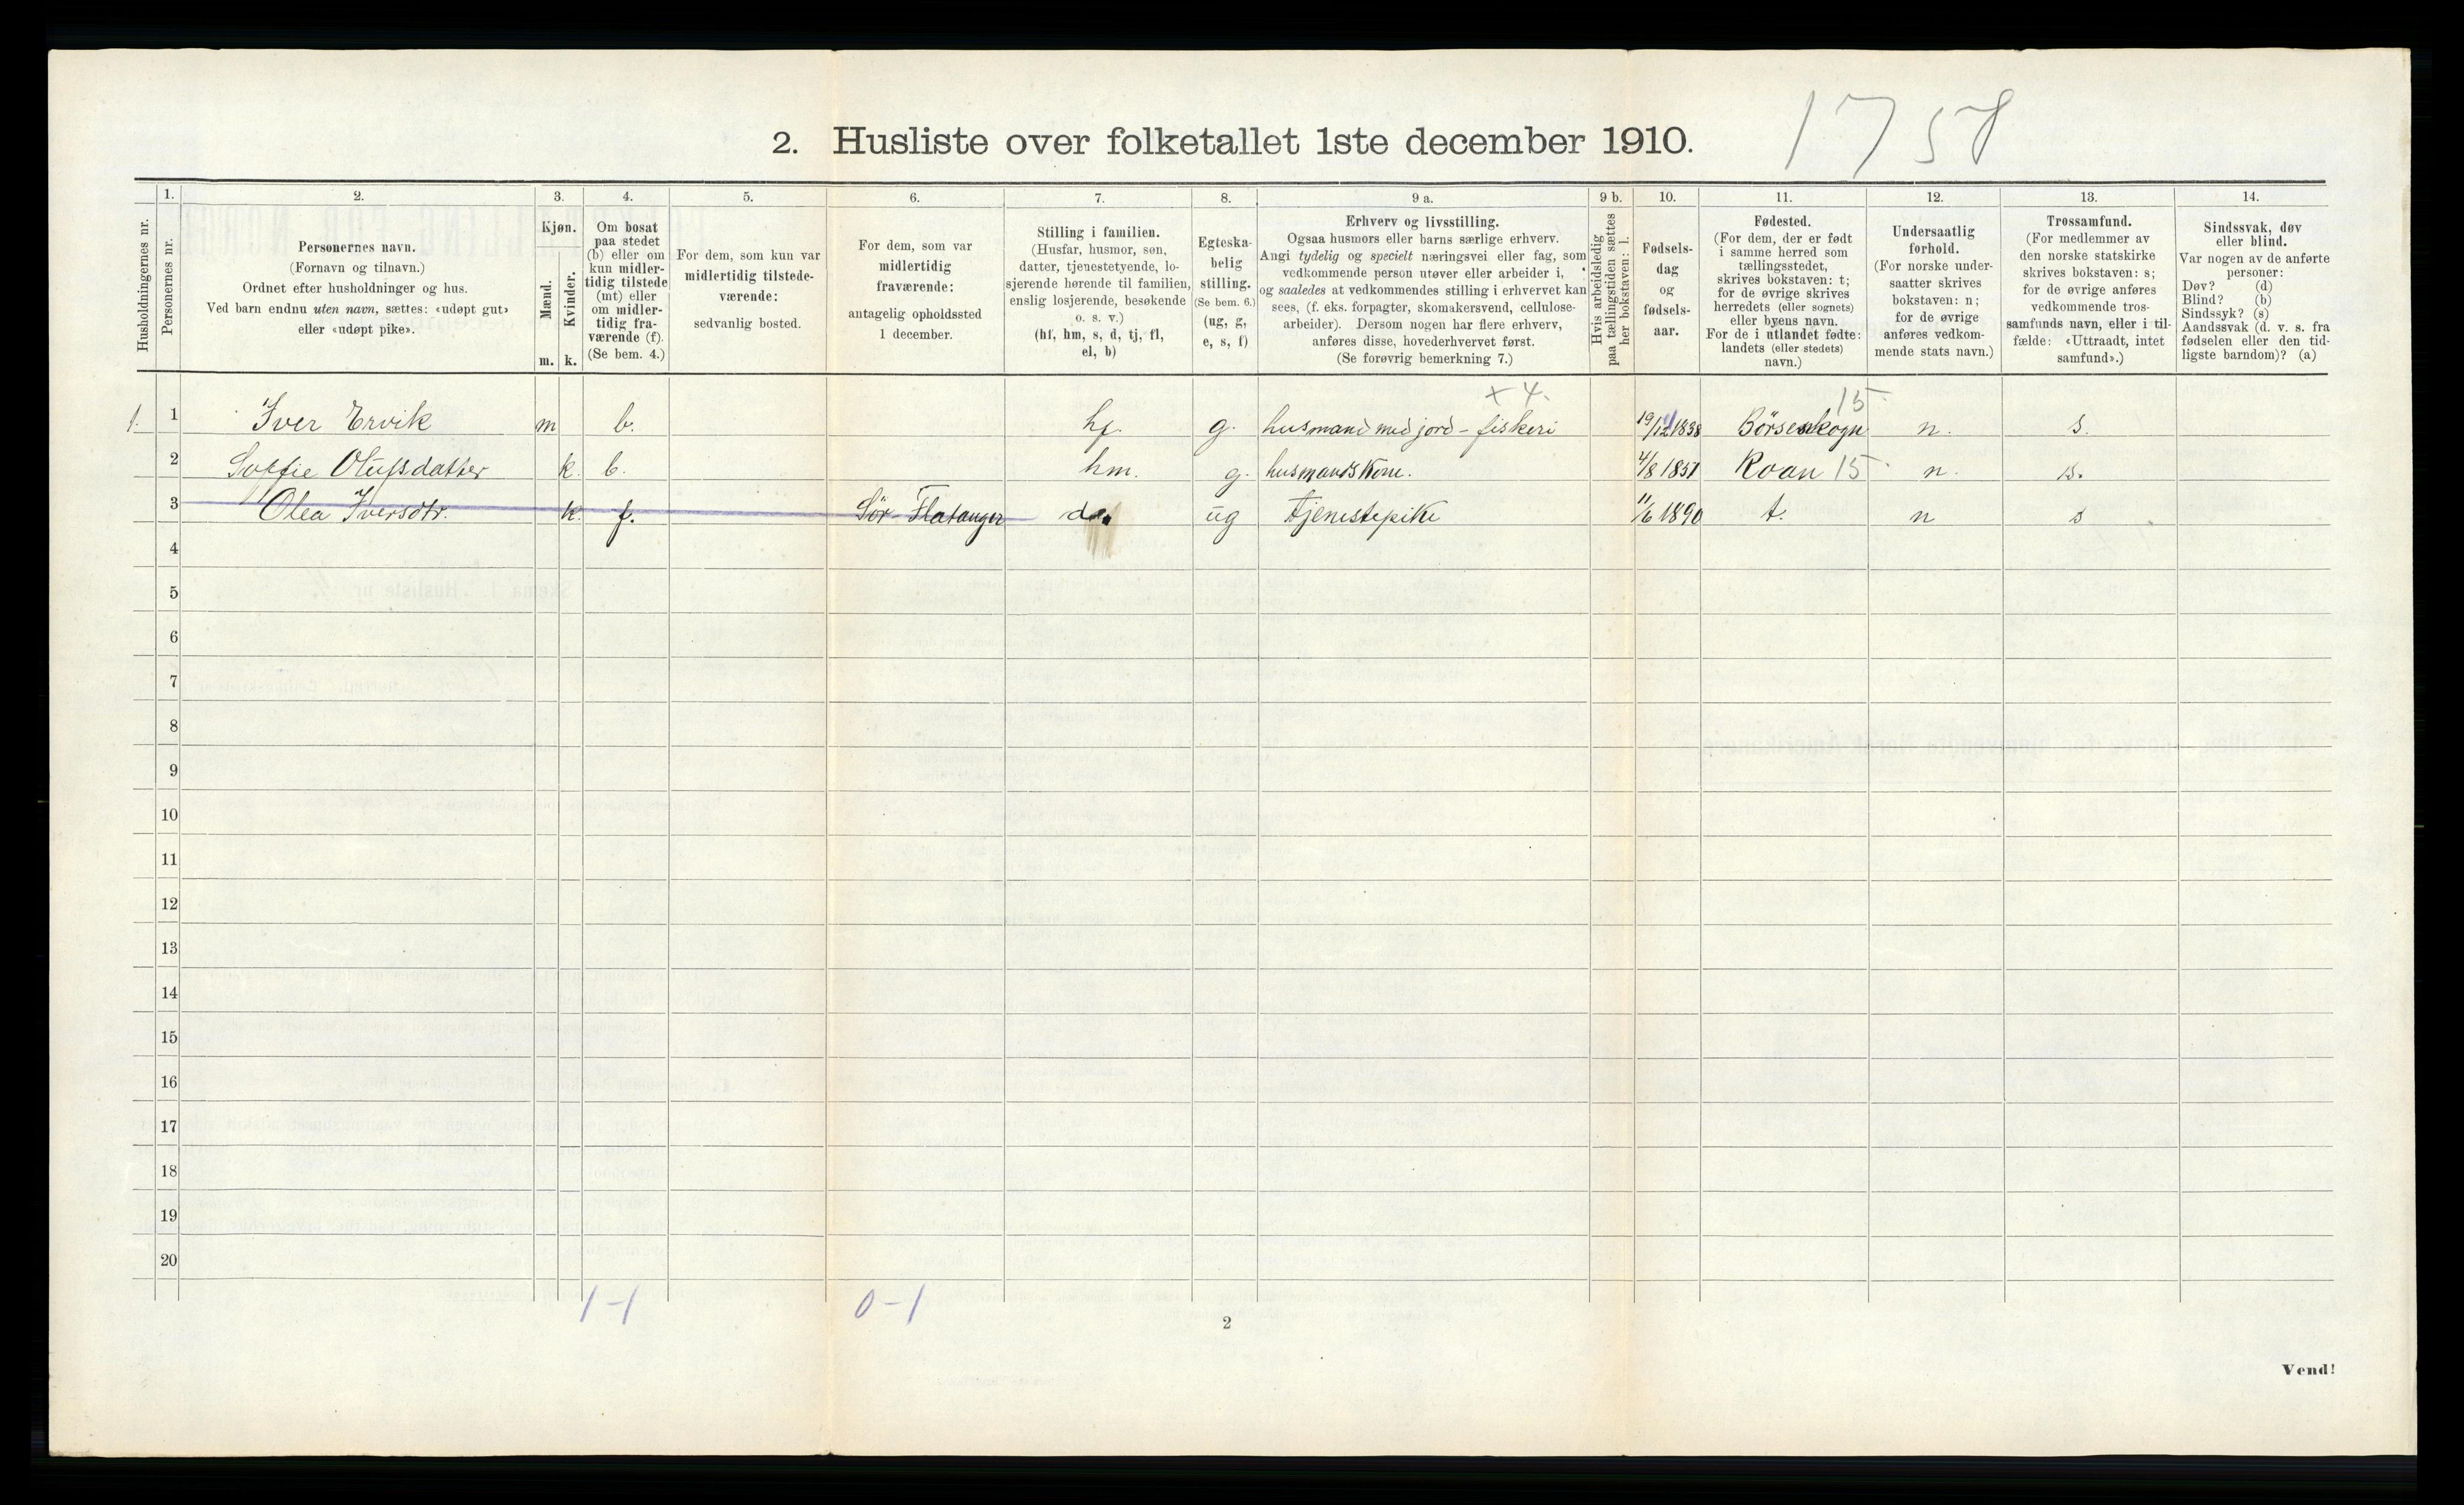 1758
2. Husliste over folketallet 1ste december 1910.
Husholdningernes nr.
1.
Personernes nr.
2.
Personernes navn.
(Fornavn og tilnavn.)
Ordnet efter husholdninger og hus.
Ved barn endnu uten navn, sættes: «udøpt gut»
eller «udøpt pike».
3.
Kjøn.
Mænd.
m.
Kvinder.
k.
4.
Om bosat
paa stedet
(b) eller om
kun midler-
tidig tilstede
(mt) eller
om midler-
tidig fra-
værende (f).
(Se bem. 4.)
5.
For dem, som kun var
midlertidig tilstede-
værende:
sedvanlig bosted.
6.
For dem, som var
midlertidig
fraværende:
antagelig opholdssted
1 december.
7.
Stilling i familien.
(Husfar, husmor, søn,
datter, tjenestetyende, lo-
sjerende hørende til familien,
enslig losjerende, besøkende
o. s. v.)
(hf, hm, s, d, tj, fl,
el, b)
8.
Egteska-
belig
stilling.
(Se bem. 6.)
(ug, g,
e, s, f)
9 a.
Erhverv og livsstilling.
Ogsaa husmors eller barns særlige erhverv.
Angi tydelig og specielt næringsvei eller fag, som
vedkommende person utøver eller arbeider i,
og saaledes at vedkommendes stilling i erhvervet kan
sees, (f. eks. forpagter, skomakersvend, cellulose-
arbeider). Dersom nogen har flere erhverv,
anføres disse, hovederhvervet først.
(Se forøvrig bemerkning 7.)
9 b.
Hvis arbeidsledig
paa tællingstiden sættes
her bokstaven: l.
10.
Fødsels-
dag
og
fødsels-
aar.
11.
Fødested.
(For dem, der er født
i samme herred som
tællingsstedet,
skrives bokstaven: t;
for de øvrige skrives
herredets (eller sognets)
eller byens navn.
For de i utlandet fødte:
landets (eller stedets)
navn.)
12.
Undersaatlig
forhold.
(For norske under-
saatter skrives
bokstaven: n;
for de øvrige
anføres vedkom-
mende stats navn.)
13.
Trossamfund.
(For medlemmer av
den norske statskirke
skrives bokstaven: s;
for de øvrige anføres
vedkommende tros-
samfunds navn, eller i til-
fælde: «Uttraadt, intet
samfund».)
14.
Sindssvak, døv
eller blind.
Var nogen av de anførte
personer:
Døv? (d)
Blind? (b)
Sindssyk? (s)
Aandssvak (d. v. s. fra
fødselen eller den tid-
ligste barndom)? (a)
+ 4. 15
1. 1 Iver Ervik m b. hf. g. husmand med jord - fiskeri 1838 Börseskogn n. s.
2 Soffie Olufsdatter k. b. hm. g. husmandskone. 4/8 1851 Roan 15 n. s.
3 Olea Iversdtr. k. f. Sör-Flatanger d. ug Tjenestepike 11/6 1890 t. n s
4
5
6
7
8
9
10
11
12
13
14
15
16
17
18
19
20
1-1 0-1
2
Vend!